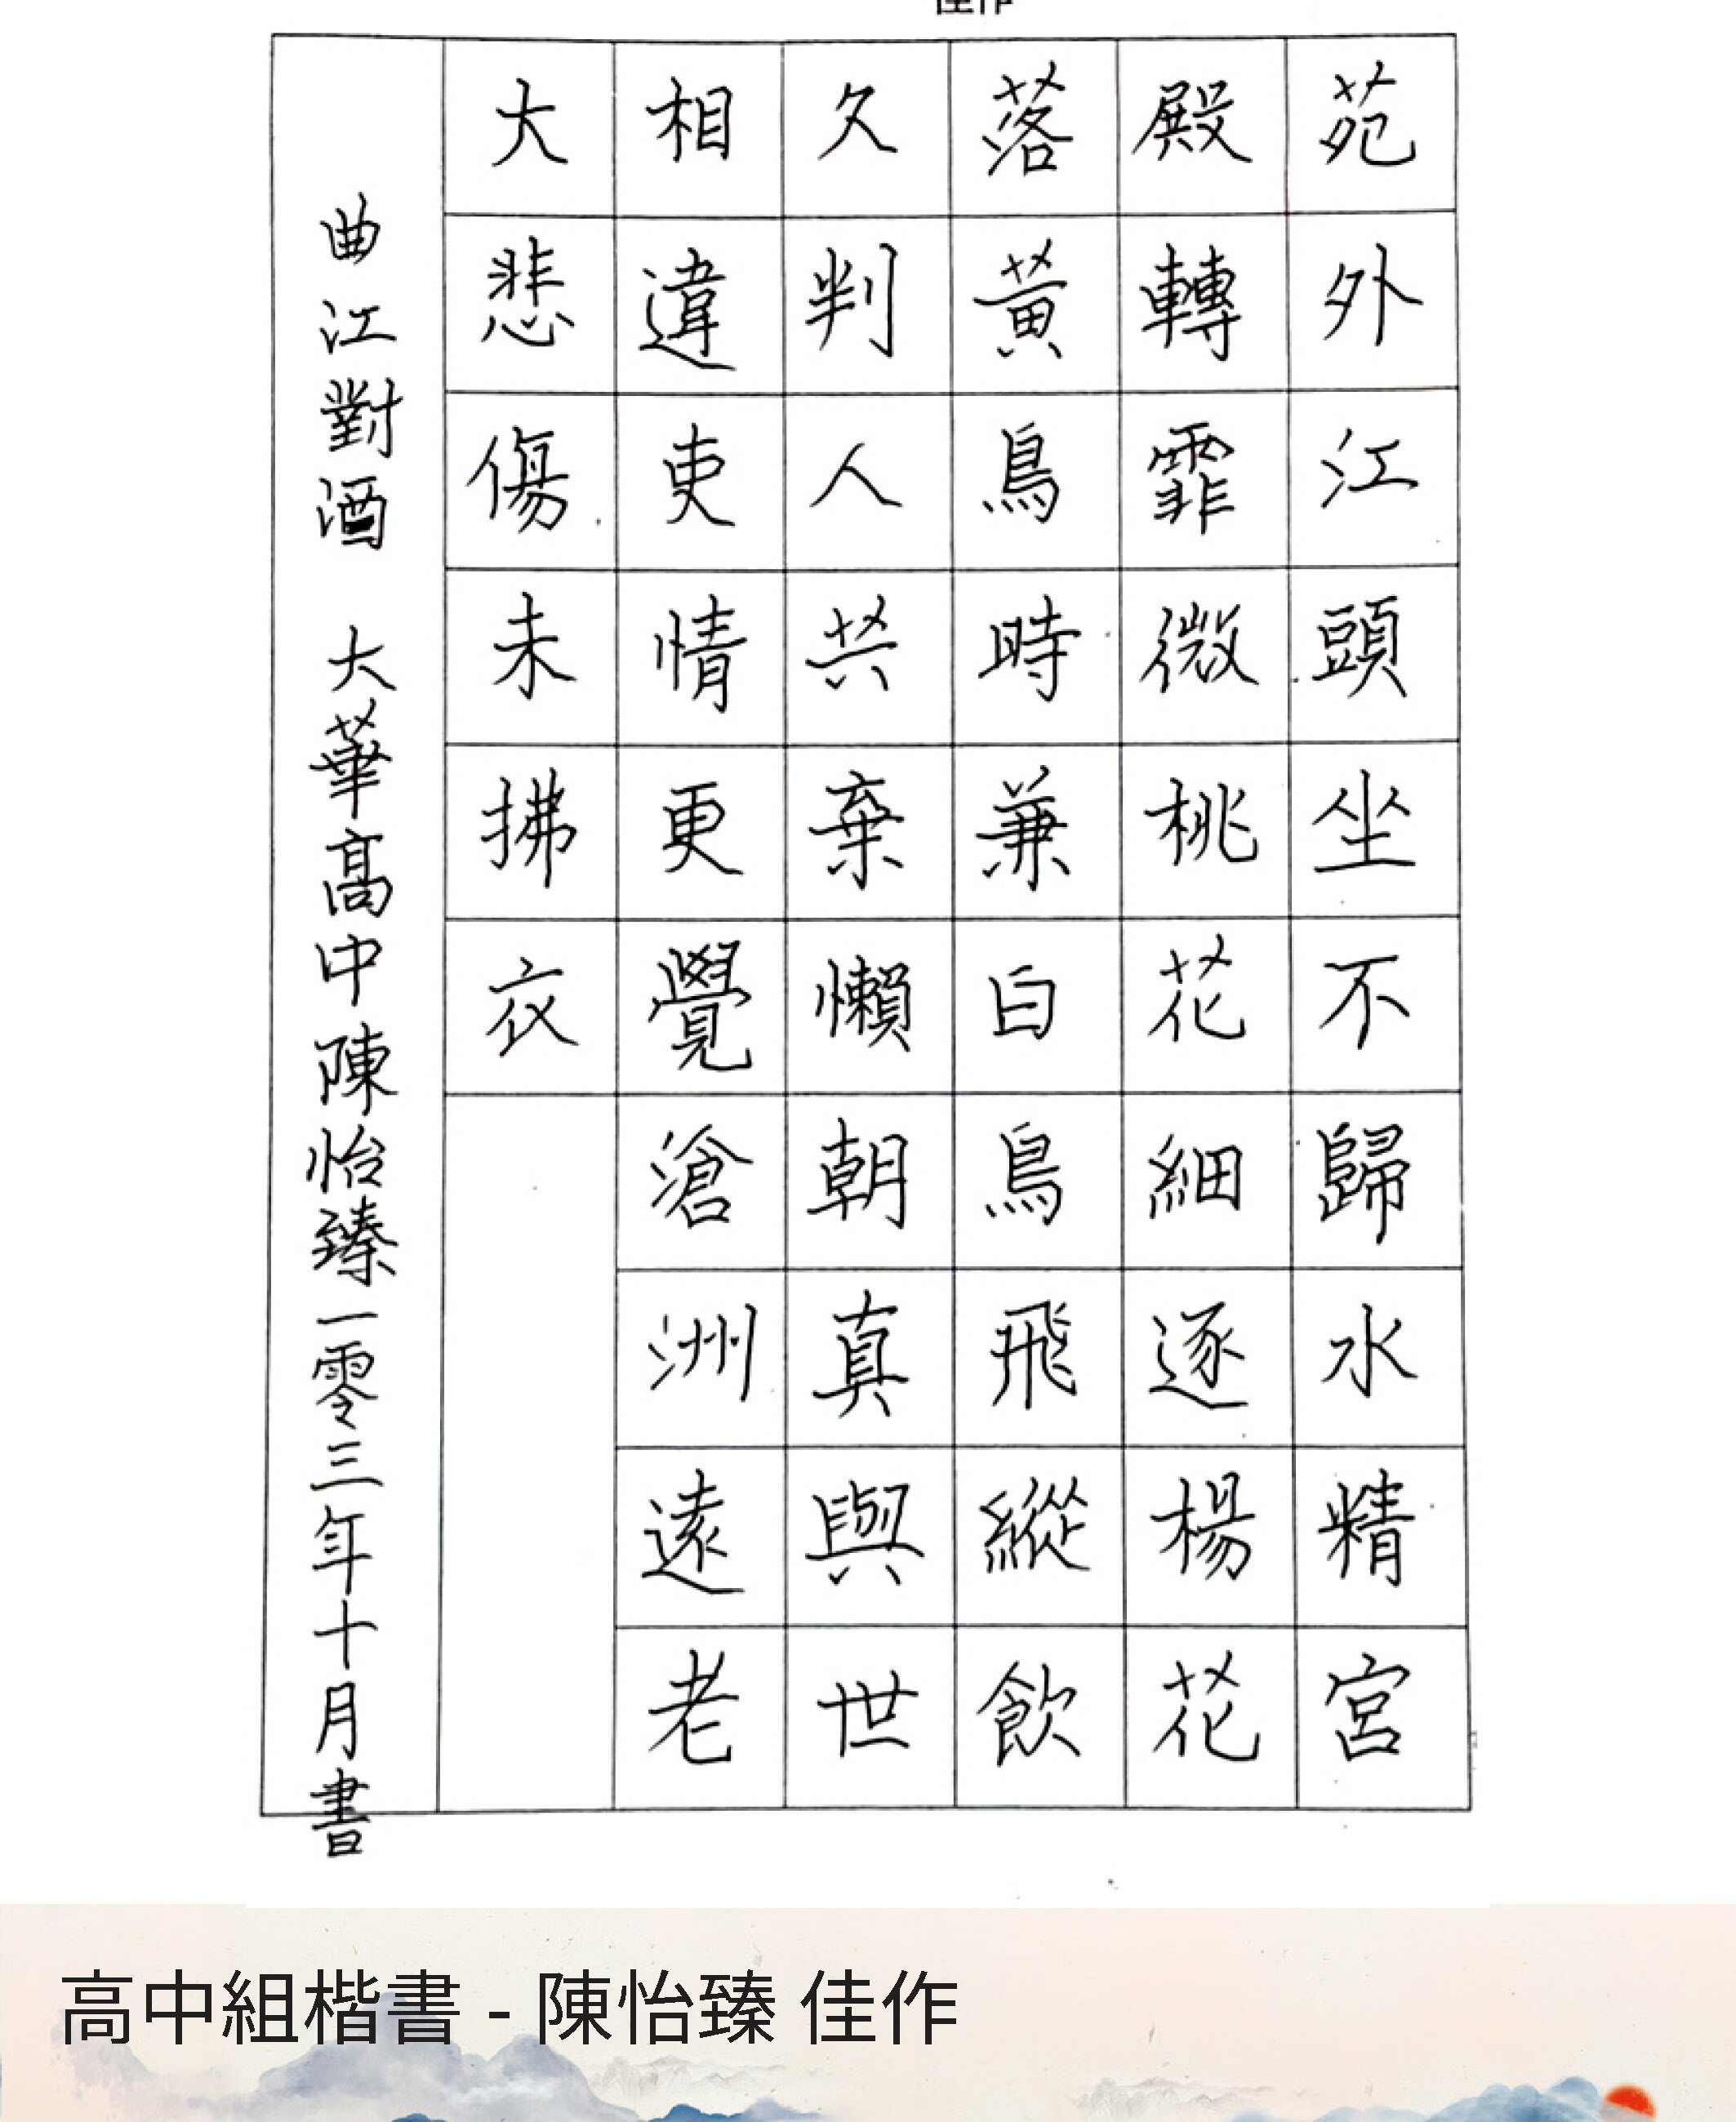 佳作
苑外江頭坐不歸水精宮
殿轉霏微桃花細逐楊花
落黃鳥時兼白鳥飛縱飲
久判人共棄懶朝真與世
相違吏情更覺滄洲遠老
大悲傷未拂衣
曲江對酒 大華高中陳怡臻一零三年十月書
高中組楷書 - 陳怡臻 佳作